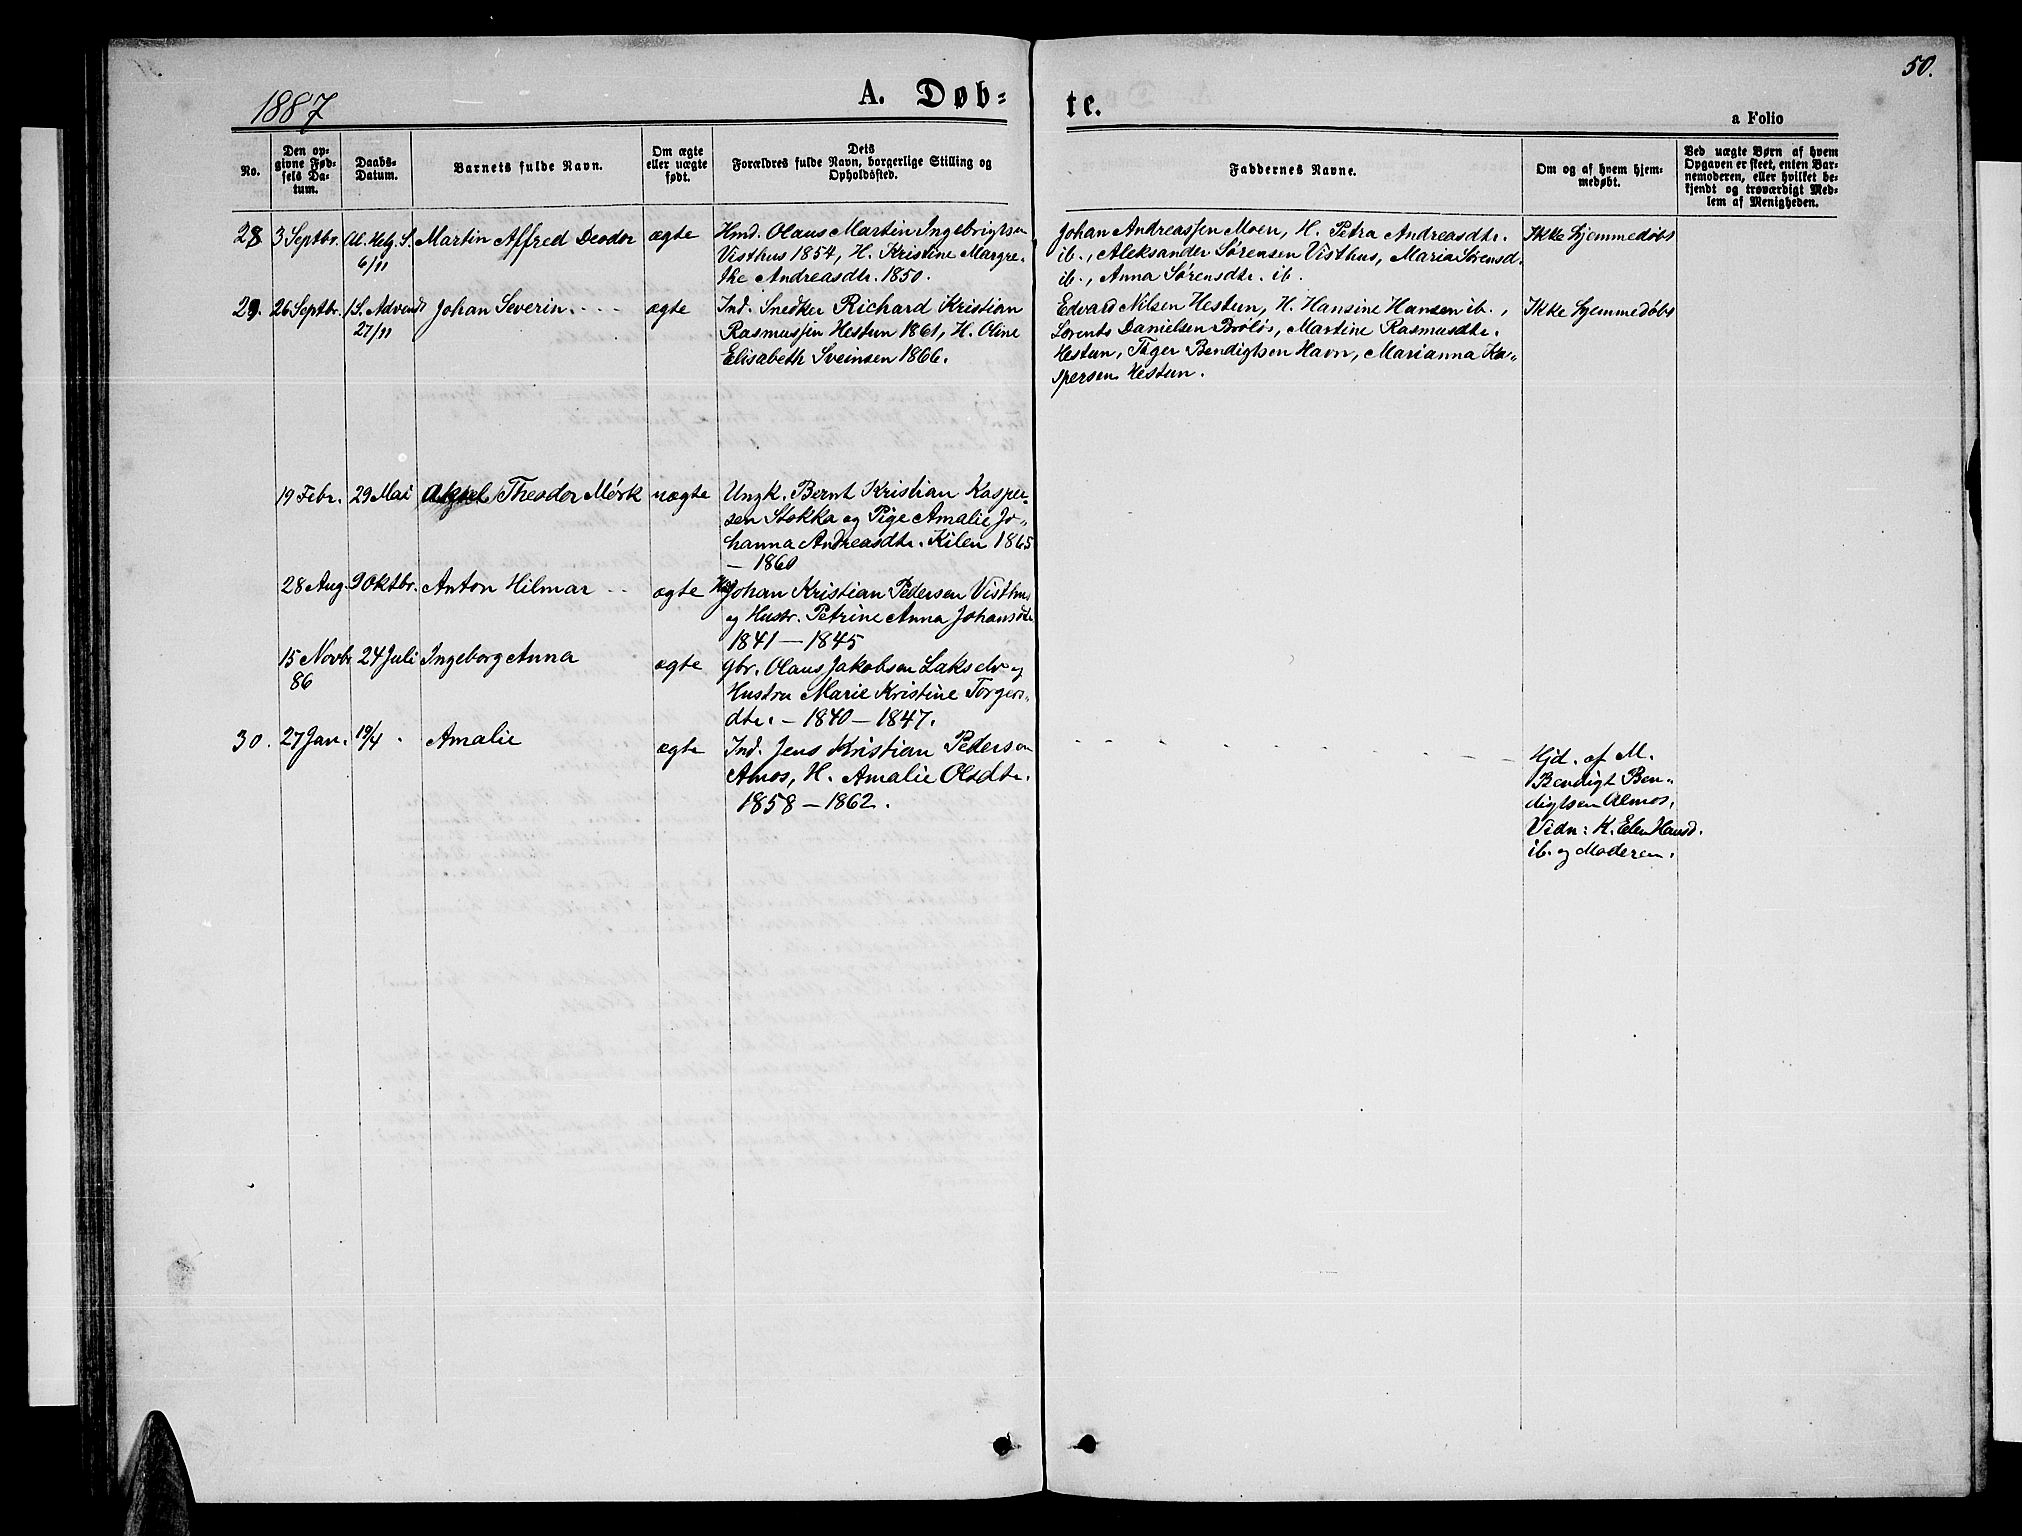 50.
1887
A. Døb=
te.
a Folio
No.
Den op=
givne Fød=
sels Da=
tum.
Daabs=
Datum.
Barnets fulde Navn.
Om ægte
eller uægte
født.
Dets
Forældres fulde Navn, borgerlige Stilling og
Opholdssted.
Faddernes Navne.
Om og af hvem hjem=
medøbt.
Ved uægte Børn af hvem
Opgaven er skeet, enten Bar=
nemoderen, eller hvilket be=
kjendt og troværdigt Med=
lem af Menigheden.
28 3 Septbr. Al. Helg. S. Martin Alfred Deodor ægte Hmd. Olaus Martin Ingebrigtsen Johan Andreassen Moen, H. Petra Andreasdtr. Ikke hjemmedøbt
6/11 Visthus 1854, H. Kristine Margre- ib., Aleksander Sørensen Visthus, Maria Sørensd.
the Andreasdtr. 1850. ib., Anna Sørensdtr. ib.
29. 26 Septbr. 1 S. Advendt Johan Severin. ægte Ind. Snedker Richard Kristian Edvard Nilsen Hestun, H. Hansine Hansen ib., Ikke hjemmedøbt
27/11 Rasmussen Hestun 1861, H. Oline Lorents Danielsen Brøløs, Martine Rasmusdtr.
Elisabeth Sveinsen 1866. Hestun, Tøger Bendigtsen Havn, Marianna Ka-
spersen Hestun.
19 Febr. 29 Mai Aksel Theodor Mörk uægte Ungk. Bernt Kristian Kasper-
sen Stokka og Pige Amalie Jo-
hanna Andreasdtr. Kilen 1865
— 1860
28 Aug. 9 Oktbr. Anton Hilmar ægte Johan Kristian Pedersen Visthus
og Hustr. Petrine Anna Johansdtr
1841 — 1845
15 Novbr 24 Juli Ingeborg Anna ægte Gbr. Olaus Jakobsen Lakselv og
86 Hustru Marie Kristine Torgers-
dtr. — 1840 — 1847.
30. 27 Jan. 19/4 Amalie ægte Ind. Jens Kristian Pedersen Hjd. af M.
Amos, H. Amalie Olsdtr. Bendigt Ben-
1858 — 1862. digtsen Almos,
Vidn: K. Elen Hansd.
ib. og Moderen.